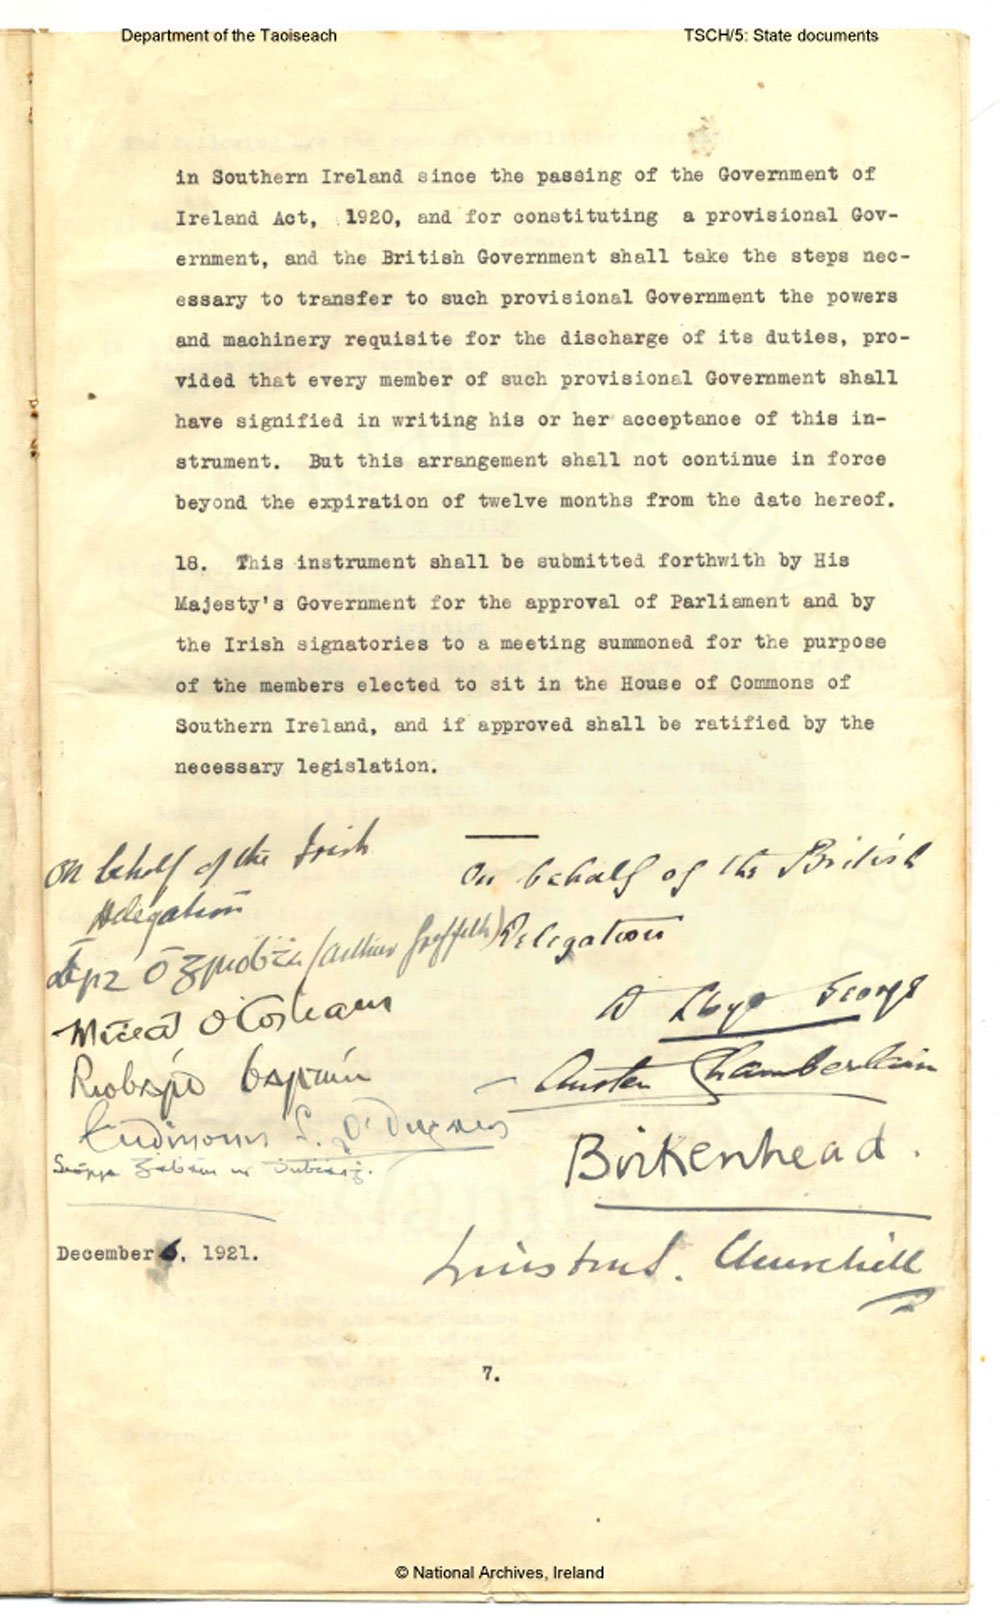 Department of the Taoiseach
TSCH/5: State documents
in Southern Ireland since the passing of the Government of
Ireland Act, 1920, and for constituting a provisional Gov-
ernment, and the British Government shall take the steps nec-
essary to transfer to such provisional Government the powers
and machinery requisite for the discharge of its duties, pro-
vided that every member of such provisional Government shall
have signified in writing his or her acceptance of this in-
strument. But this arrangement shall not continue in force
beyond the expiration of twelve months from the date hereof.
18. This instrument shall be submitted forthwith by His
Majesty's Government for the approval of Parliament and by
the Irish signatories to a meeting summoned for the purpose
of the members elected to sit in the House of Commons of
Southern Ireland, and if approved shall be ratified by the
necessary legislation.
On behalf of the Irish
Delegation
Art Ó Gríobhtha (Arthur Griffith)
Mícheál Ó Coileain
Riobárd Bartún
Eudmonn S. Ó Dugain
Seórsa Ghabháin uí Dhubhthaigh.
December 6, 1921.
On behalf of the British
Delegation
D Lloyd George
Austen Chamberlain
Birkenhead.
Winston S. Churchill
7.
© National Archives, Ireland